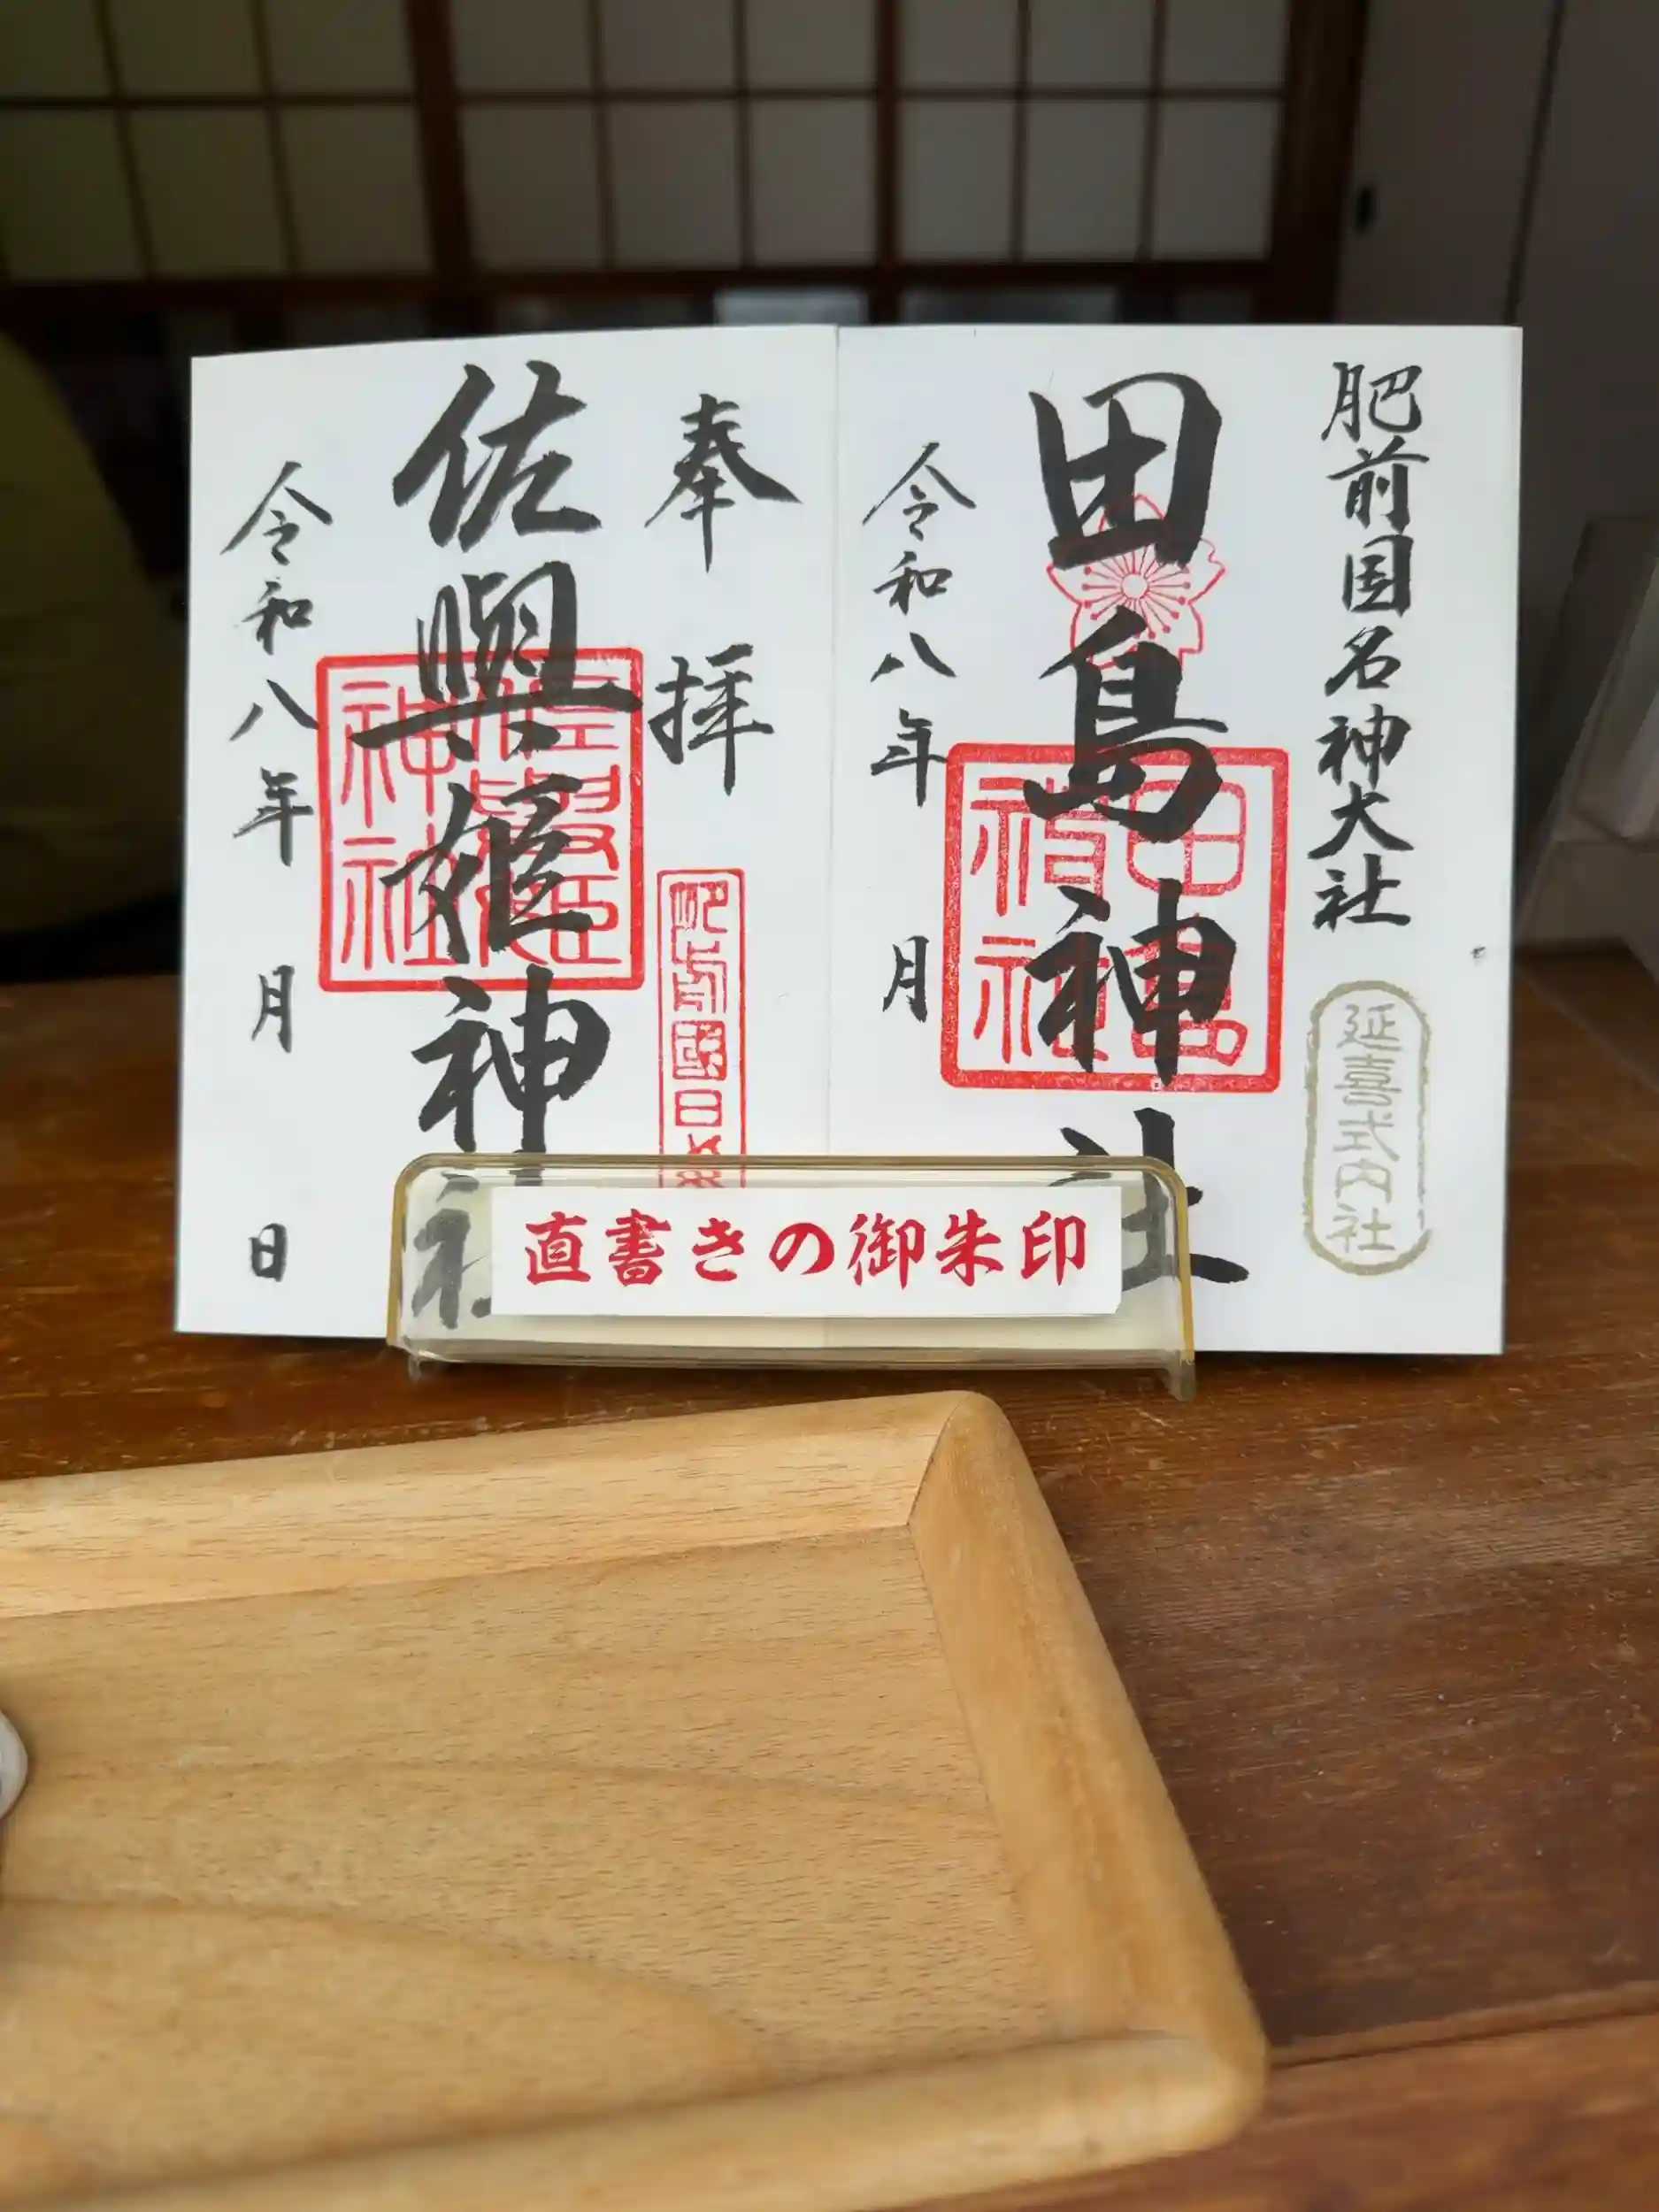 肥前国名神大社
延喜式内社
田島神社
田島神社
令和八年 月
奉拝
佐與姫神社
令和八年 月 日
直書きの御朱印